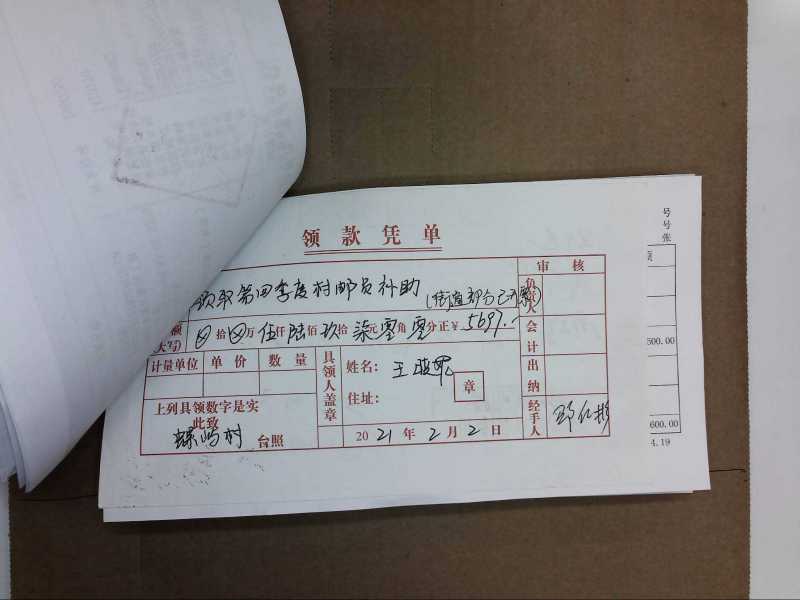 领款凭单
领取第四季度村邮员补助
审核
负责人
额
(大写)
拾 万 伍仟陆佰玖拾柒元零角零分正￥5697.-
会计
计量单位 单价 数量
具领人盖章
姓名: 王
章
住址:
出纳
上列具领数字是实
此致
村 台照
2021年2月2日
经手人
号
号
张
500.00
600.00
4.19